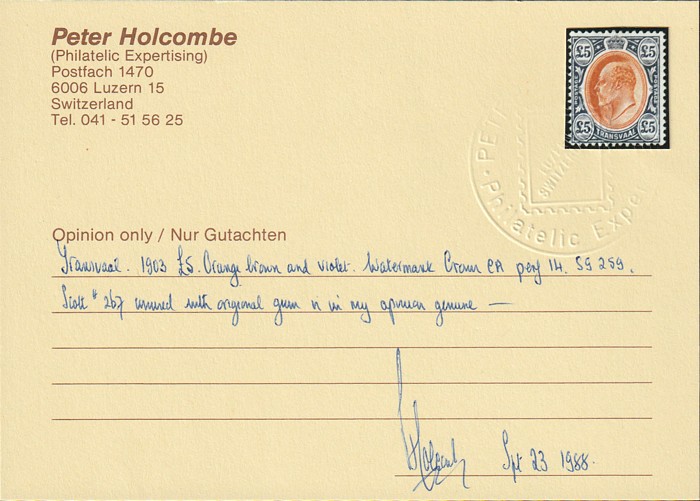 Peter Holcombe
(Philatelic Expertising)
Postfach 1470
6006 Luzern 15
Switzerland
Tel. 041 - 51 56 25
£5 £5
POSTAGE POSTAGE
£5 TRANSVAAL £5
PET
LUZ
SWITZE
Philatelic Exper
Opinion only / Nur Gutachten
Transvaal. 1903 £5. Orange brown and violet. Watermark Crown CA perf 14. SG 259.
Scott # 267 unused with original gum is in my opinion genuine —
Holcombe Spt 23 1988.